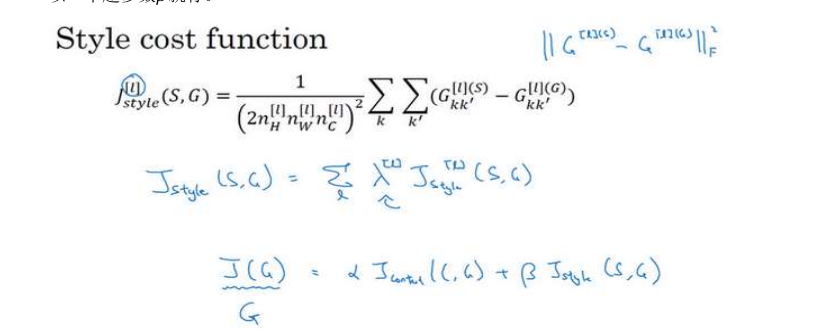 Style cost function
‖G^{[l](S)} - G^{[l](G)}‖_F^2
J^{[l]}_{style}(S,G) = 1/(2n_H^{[l]}n_W^{[l]}n_C^{[l]})^2 ∑_k ∑_{k'}(G_{kk'}^{[l](S)} − G_{kk'}^{[l](G)})
J_{style}(S,G) = ∑_l λ^{[l]} J_{style}^{[l]}(S,G)
J(G) = α J_{content}(C,G) + β J_{style}(S,G)
G